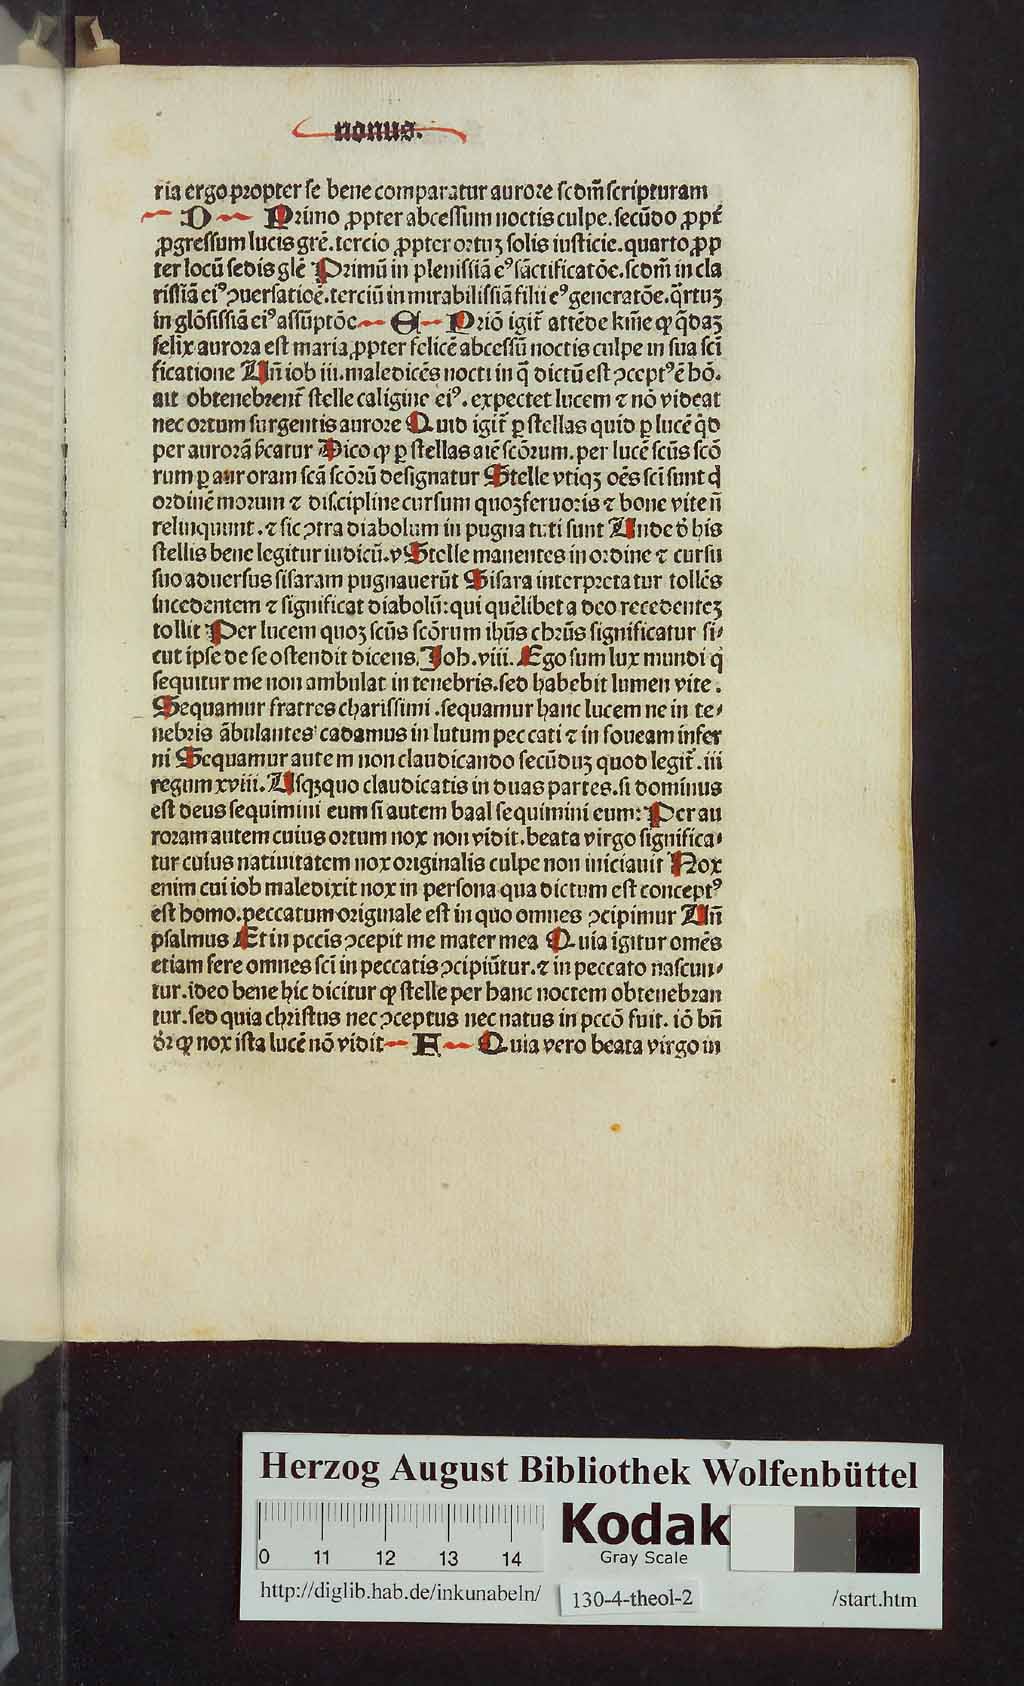 nonus.
ria ergo propter se bene comparatur aurore scdm̄ scripturam
D Primo ꝓpter abcessum noctis culpe. secūdo ꝓpt̄
ꝓgressum lucis grē. tercio ꝓpter ortuꝫ solis iusticie. quarto ꝓp
ter locū sedis glē Primū in plenissiā eꝰ sāctificatōe. scdm̄ in cla
rissiā eiꝰ ꝯuersatiōe. terciū in mirabilissiā filii eꝰ generatōe. q̄rtuꝫ
in glōsissiā eiꝰ assūptōe E Priō igit̄ attēde km̄e ꝙ q̄daꝫ
felix aurora est maria ꝓpter felicē abcessū noctis culpe in sua scī
ficatione Un̄ iob iii. maledicēs nocti in q̄ dictū est ꝯceptꝰ ē hō.
ait obtenebrent̄ stelle caligine eiꝰ. expectet lucem ⁊ nō videat
nec ortum surgentis aurore Quid igit̄ ꝑ stellas quid ꝑ lucē q̇d
per aurorā vcatur Dico ꝙ ꝑ stellas aīe scōrum. per lucē scūs scō
rum ꝑ auroram scā scōrū designatur Stelle vtiqꝫ oēs scī sunt q̇
ordinē morum ⁊ discipline cursum quoꝫ feruoris ⁊ bone vite n̄
relinquunt. ⁊ sic ꝯtra diabolum in pugna tuti sunt Unde d̄ his
stellis bene legitur iudicū. v Stelle manentes in ordine ⁊ cursu
suo aduersus sisaram pugnauerūt Sisara interpretatur tollēs
incedentem ⁊ significat diabolū: qui quēlibet a deo recedenteꝫ
tollit Per lucem quoꝫ scūs scōrum ihūs chrūs significatur si⸗
cut ipse de se ostendit dicens. Joh. viii. Ego sum lux mundi q̇
sequitur me non ambulat in tenebris. sed habebit lumen vite.
Sequamur fratres charissimi. sequamur hanc lucem ne in te⸗
nebris ābulantes cadamus in lutum peccati ⁊ in foueam infer
ni Sequamur autem non claudicando secūduꝫ quod legit̄. iii
regum xviii. Usqꝫquo claudicatis in duas partes. si dominus
est deus sequimini eum si autem baal sequimini eum: Per au
roram autem cuius ortum nox non vidit. beata virgo significa⸗
tur cuius natiuitatem nox originalis culpe non iniciauit Nox
enim cui iob maledixit nox in persona qua dictum est conceptꝰ
est homo. peccatum originale est in quo omnes ꝯcipimur Un̄
psalmus Et in pccīs ꝯcepit me mater mea Quia igitur omēs
etiam fere omnes scī in peccatis ꝯcipiūtur. ⁊ in peccato nascun⸗
tur. ideo bene hic dicitur ꝙ stelle per hanc noctem obtenebran
tur. sed quia christus nec ꝯceptus nec natus in pccō fuit. iō bn̄
dr̄ ꝙ nox ista lucē nō vidit F Quia vero beata virgo in
Herzog August Bibliothek Wolfenbüttel
0 11 12 13 14
Kodak
Gray Scale
http://diglib.hab.de/inkunabeln/ 130-4-theol-2 /start.htm